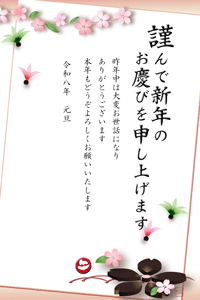 謹んで新年の
お慶びを申し上げます
昨年中は大変お世話になり
ありがとうございます
本年もどうぞよろしくお願いいたします
令和八年 元旦